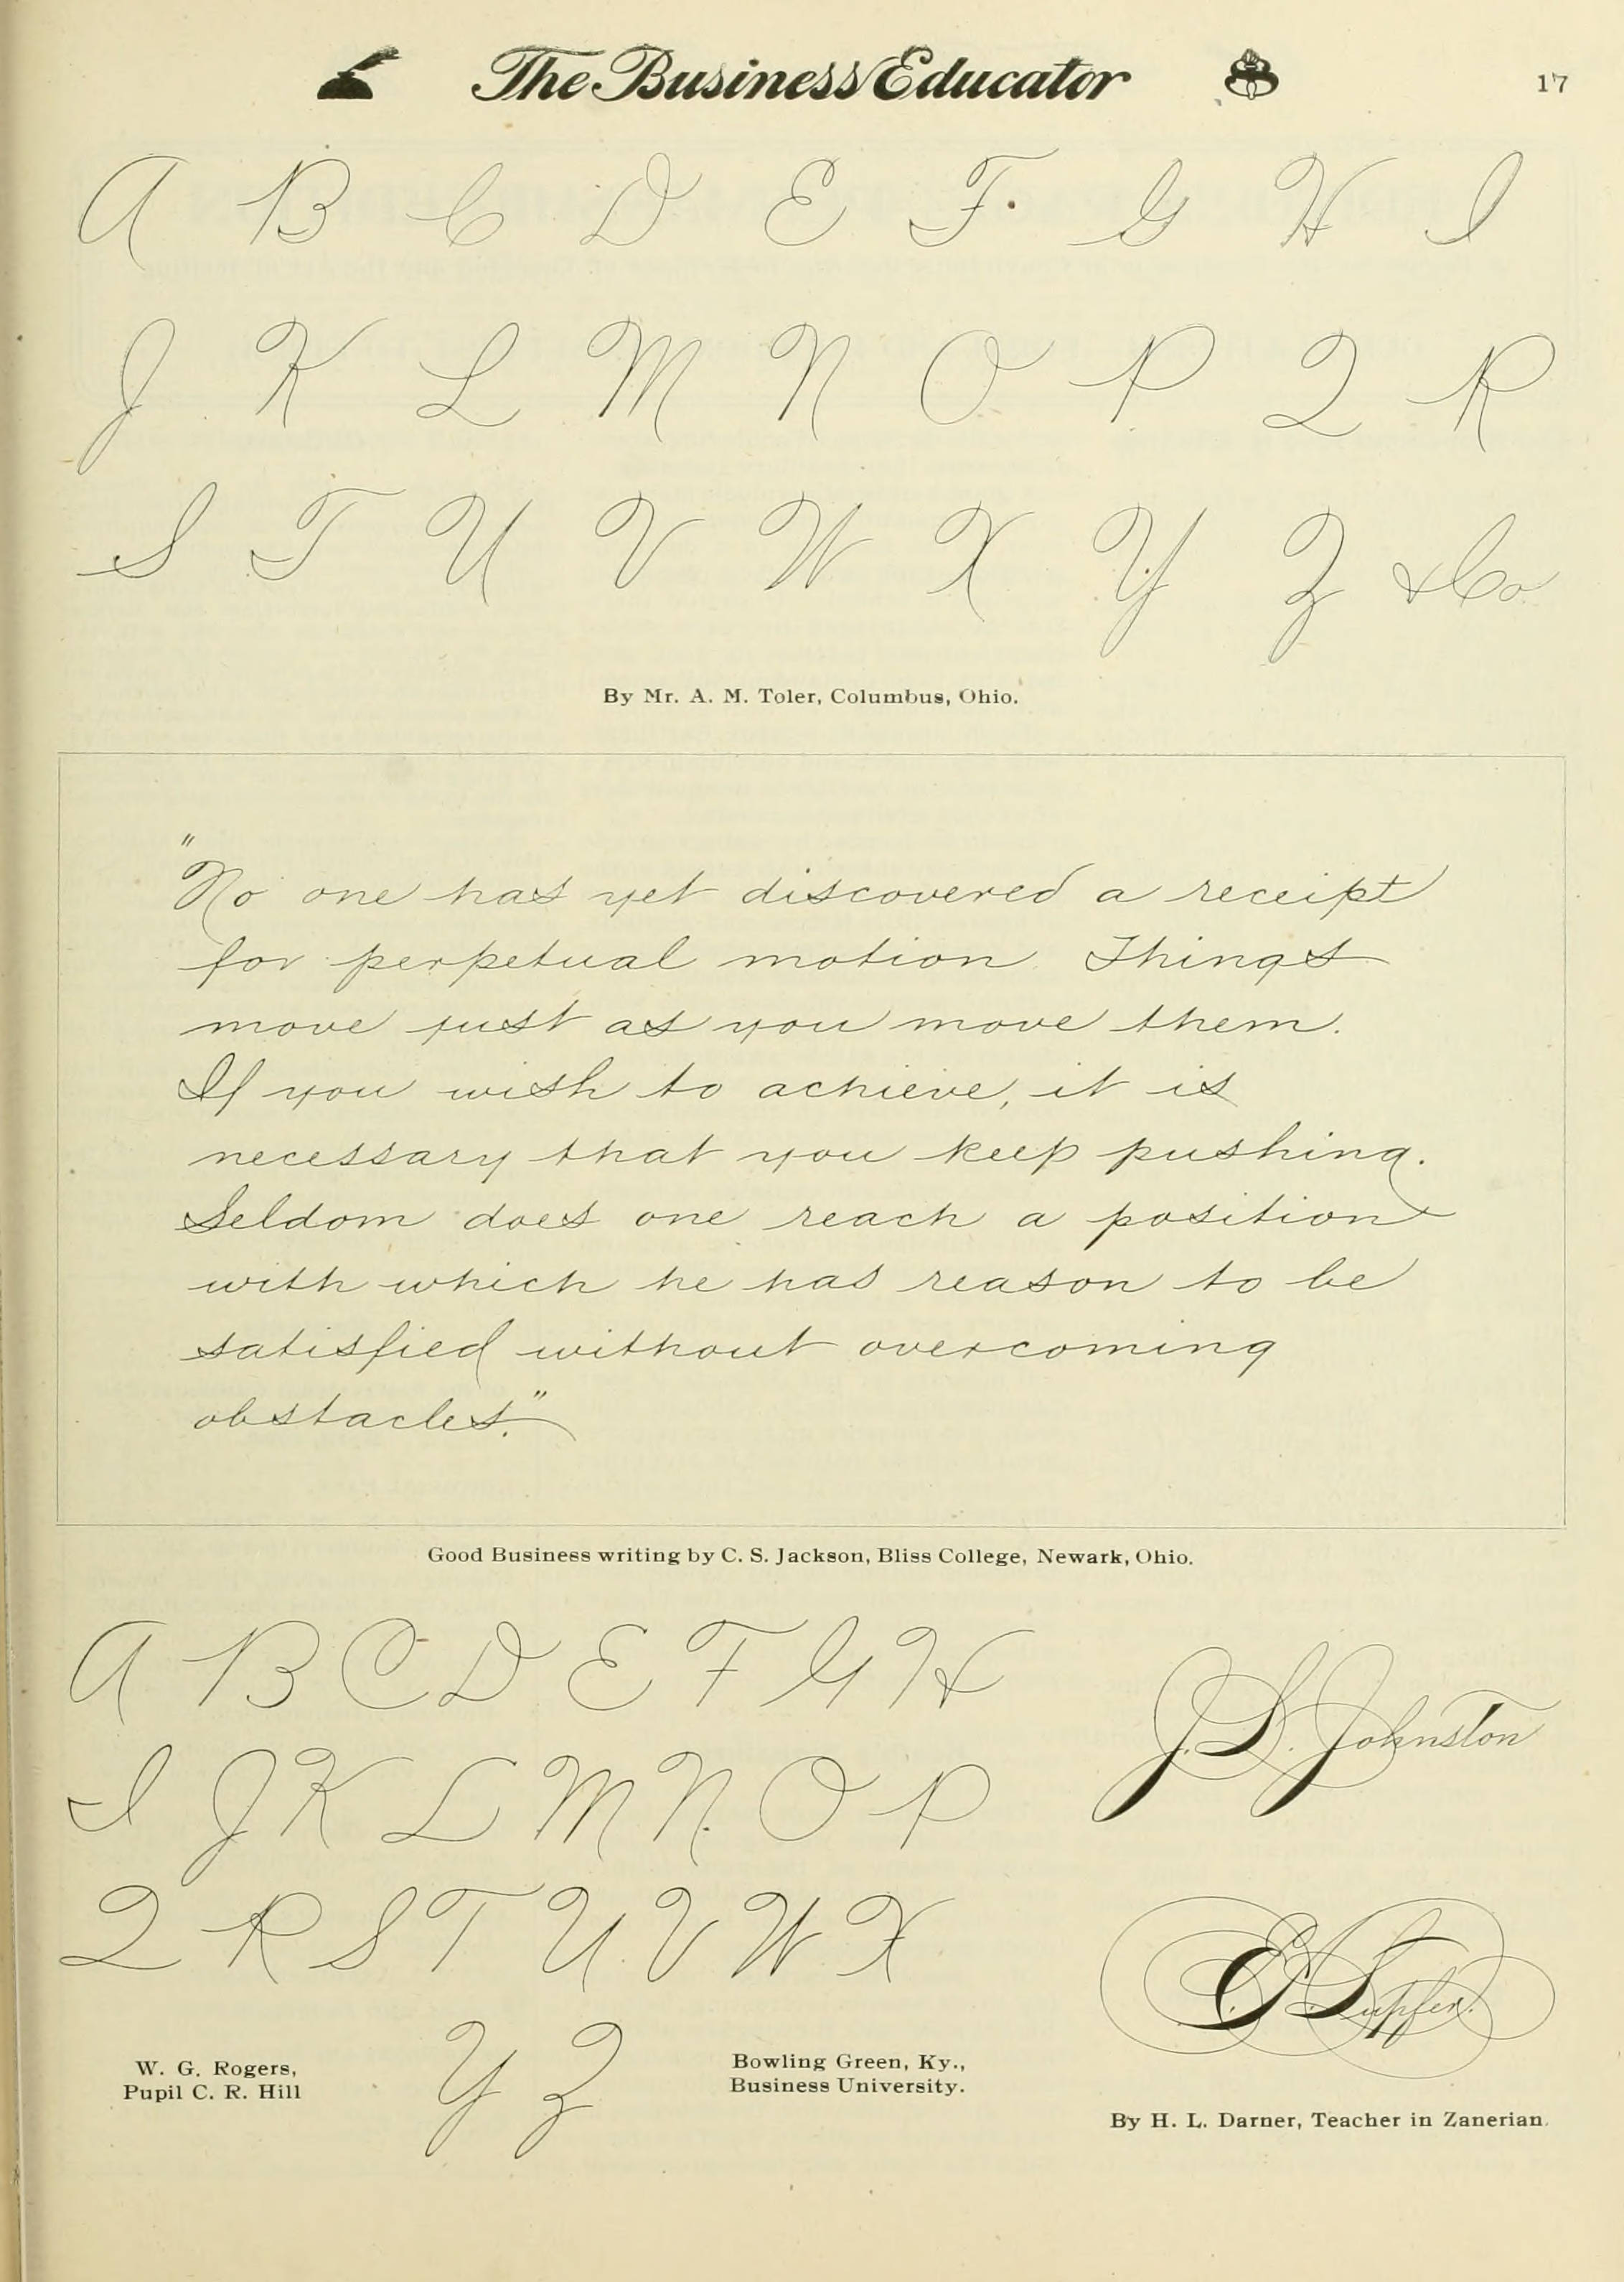 The Business Educator
17
A B C D E F G H I
J K L M N O P Q R
S T U V W X Y Z & Co.
By Mr. A. M. Toler, Columbus, Ohio.
"No one has yet discovered a receipt
for perpetual motion. Things
move just as you move them.
If you wish to achieve, it is
necessary that you keep pushing.
Seldom does one reach a position
with which he has reason to be
satisfied without overcoming
obstacles."
Good Business writing by C. S. Jackson, Bliss College, Newark, Ohio.
A B C D E F G H
I J K L M N O P
Q R S T U V W X
Y Z
W. G. Rogers,
Pupil C. R. Hill
Bowling Green, Ky.,
Business University.
J. S. Johnston
E. A. Lupfer.
By H. L. Darner, Teacher in Zanerian.